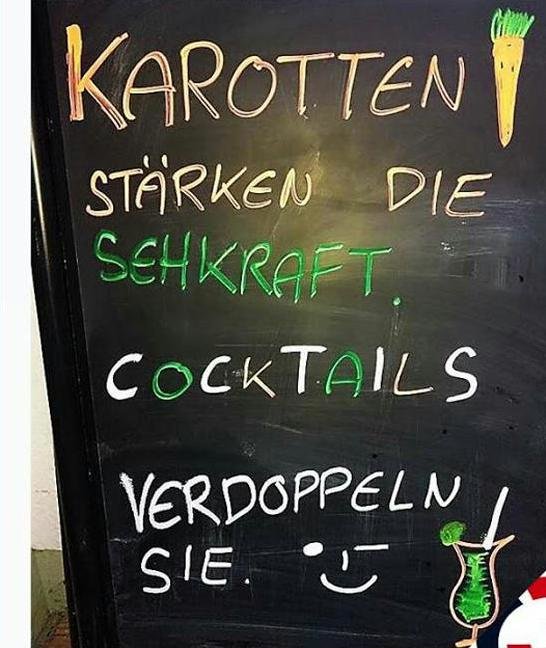 KAROTTEN
STÄRKEN DIE
SEHKRAFT.
COCKTAILS
VERDOPPELN
SIE.